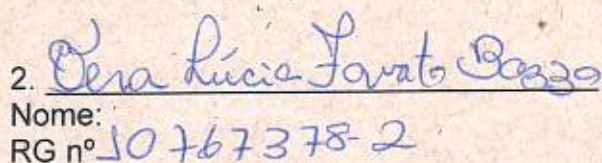 2. Vera Lúcia Favato Bozzo
Nome:
RG nº 10767378-2